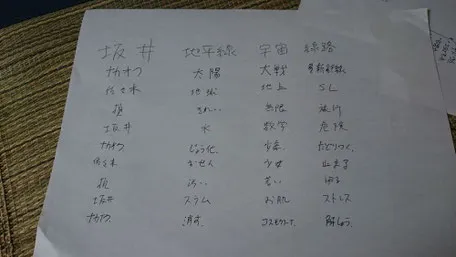 坂井 地平線 宇宙 線路
ナカオワ 太陽 大戦
佐々木 地球 地上 SL
槙 きれい 無限 旅行
坂井 水 数学 危険
ナカオワ じょう化 少年 たどりつく
佐々木 おせん 少女 止まる
槙 汚い 若い 帰る
坂井 スラム お肌 ストレス
ナカオワ 消す コスモクリーナー 解しょう